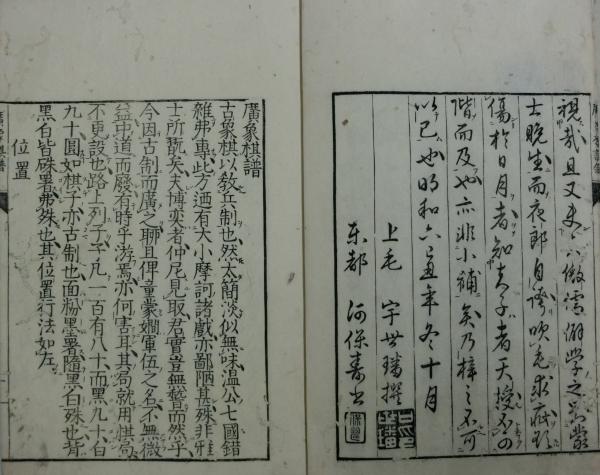 視哉且又夫儒僻学之
士晩生而夜郎自誇吹毛求疵欲
傷於日月者知夫子者天授不可
階而及也亦非小補矣乃梓之不可
以已也明和六己丑年冬十月
上毛 宇世璠撰
東都 河保壽書
廣象棋譜
古象棋以敎兵制也然太簡淡似無味温公七國錯
雜弗專此方迺有大小摩訶諸戲亦鄙陋甚殊非雅
士所翫矣夫博奕者仲尼見取君實豈無而然乎
今因古制而廣之聊且俾童蒙嫺軍伍之名不無微
益中道而廢有時乎游焉亦何害耳其局就用棋局
不更設也路上列子子凡一百有八十而黑九十白
九十圓如棋子亦古制也面粉墨署隨黑白殊也背
黑白皆硃署弗殊也其位置行法如左
位置